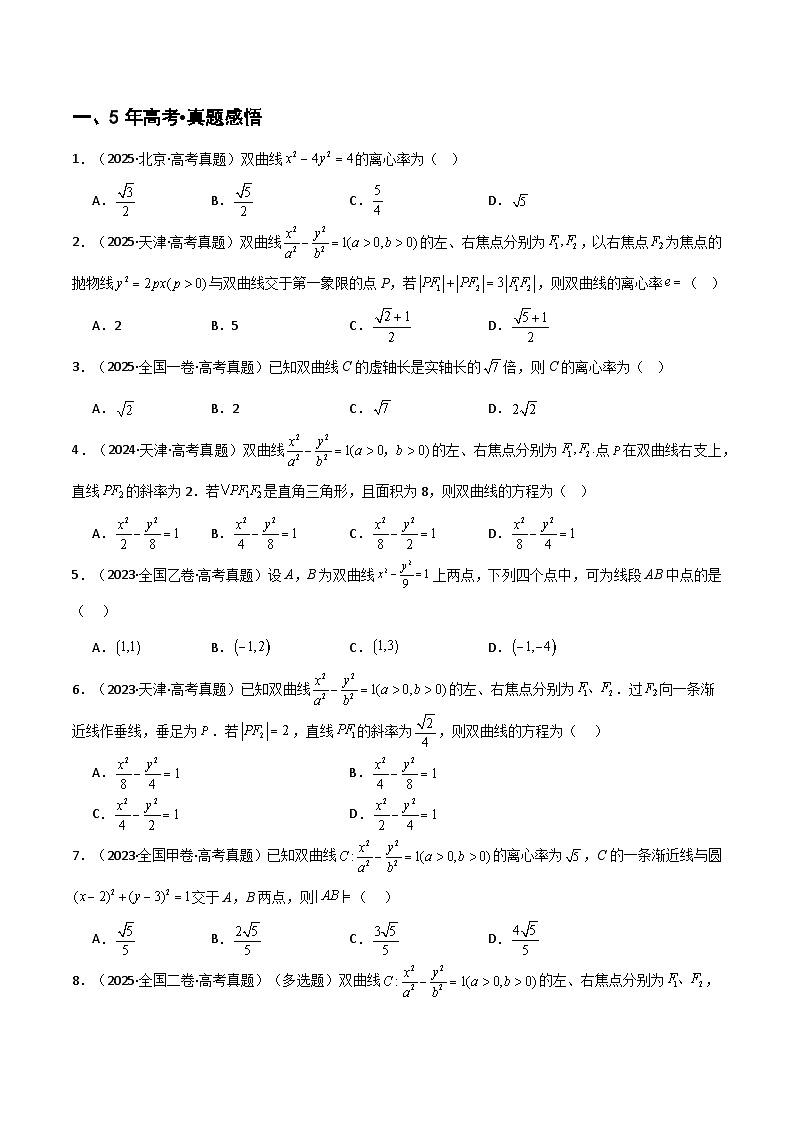 一、5年高考•真题感悟
1.（2025·北京·高考真题）双曲线 x² − 4y² = 4 的离心率为（ ）
A. √3/2 B. √5/2 C. 5/4 D. √5
2.（2025·天津·高考真题）双曲线 x²/a² − y²/b² = 1(a > 0, b > 0) 的左、右焦点分别为 F₁, F₂，以右焦点 F₂ 为焦点的
抛物线 y² = 2px(p > 0) 与双曲线交于第一象限的点 P，若 |PF₁| + |PF₂| = 3|F₁F₂|，则双曲线的离心率 e =（ ）
A. 2 B. 5 C. (√2+1)/2 D. (√5+1)/2
3.（2025·全国一卷·高考真题）已知双曲线 C 的虚轴长是实轴长的 √7 倍，则 C 的离心率为（ ）
A. √2 B. 2 C. √7 D. 2√2
4.（2024·天津·高考真题）双曲线 x²/a² − y²/b² = 1(a > 0，b > 0) 的左、右焦点分别为 F₁, F₂. 点 P 在双曲线右支上，
直线 PF₂ 的斜率为 2. 若 ∨PF₁F₂ 是直角三角形，且面积为 8，则双曲线的方程为（ ）
A. x²/2 − y²/8 = 1 B. x²/4 − y²/8 = 1 C. x²/8 − y²/2 = 1 D. x²/8 − y²/4 = 1
5.（2023·全国乙卷·高考真题）设 A，B 为双曲线 x² − y²/9 = 1 上两点，下列四个点中，可为线段 AB 中点的是
（ ）
A. (1,1) B. (−1,2) C. (1,3) D. (−1,−4)
6.（2023·天津·高考真题）已知双曲线 x²/a² − y²/b² = 1(a > 0, b > 0) 的左、右焦点分别为 F₁、F₂. 过 F₂ 向一条渐
近线作垂线，垂足为 P. 若 |PF₂| = 2，直线 PF₁ 的斜率为 √2/4，则双曲线的方程为（ ）
A. x²/8 − y²/4 = 1 B. x²/4 − y²/8 = 1
C. x²/4 − y²/2 = 1 D. x²/2 − y²/4 = 1
7.（2023·全国甲卷·高考真题）已知双曲线 C: x²/a² − y²/b² = 1(a > 0, b > 0) 的离心率为 √5，C 的一条渐近线与圆
(x − 2)² + (y − 3)² = 1 交于 A，B 两点，则 |AB| =（ ）
A. √5/5 B. 2√5/5 C. 3√5/5 D. 4√5/5
8.（2025·全国二卷·高考真题）（多选题）双曲线 C: x²/a² − y²/b² = 1(a > 0, b > 0) 的左、右焦点分别为 F₁、F₂，